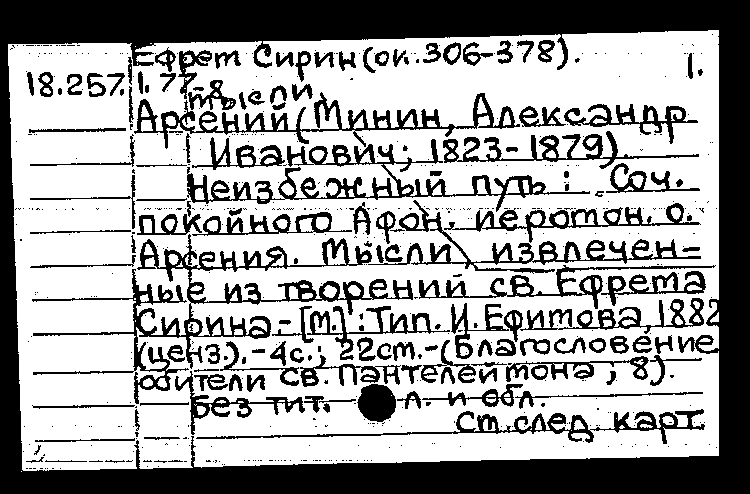 Ефрем Сирин (ок. 306-378).
18.257.1.77-8
Мысли.
Арсений (Минин, Александр
Иванович; 1823-1879).
Неизбежный путь: Соч.
покойного Афон. иеромон. о.
Арсения. Мысли, извлечен-
ные из творений св. Ефрема
Сирина.- [М.]: Тип. И. Ефимова, 1882
(ценз.).-4с.; 22см.-(Благословение
обители св. Пантелеймона; 8).
Без тит. л. и обл.
См. след. карт.
1.